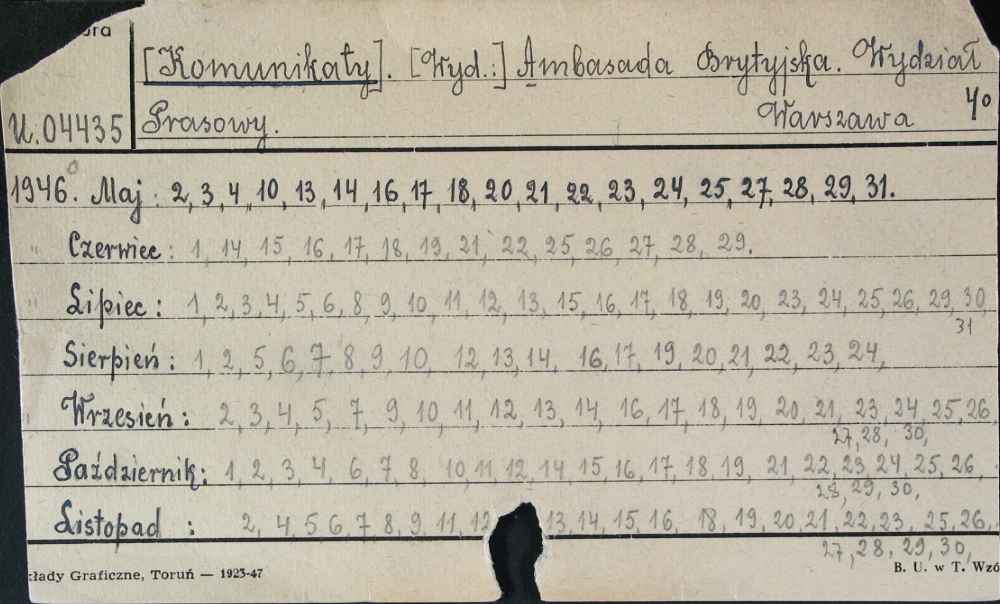 ora
[Komunikaty]. [Wyd.:] Ambasada Brytyjska. Wydział
U.04435 Prasowy. Warszawa 4o
1946. Maj: 2, 3, 4, 10, 13, 14, 16, 17, 18, 20, 21, 22, 23, 24, 25, 27, 28, 29, 31.
" Czerwiec: 1, 14, 15, 16, 17, 18, 19, 21, 22, 25, 26, 27, 28, 29.
" Lipiec: 1, 2, 3, 4, 5, 6, 8, 9, 10, 11, 12, 13, 15, 16, 17, 18, 19, 20, 23, 24, 25, 26, 29, 30,
31
Sierpień: 1, 2, 5, 6, 7, 8, 9, 10, 12, 13, 14, 16, 17, 19, 20, 21, 22, 23, 24,
Wrzesień: 2, 3, 4, 5, 7, 9, 10, 11, 12, 13, 14, 16, 17, 18, 19, 20, 21, 23, 24, 25, 26
27, 28, 30,
Październik: 1, 2, 3, 4, 6, 7, 8, 10, 11, 12, 14, 15, 16, 17, 18, 19, 21, 22, 23, 24, 25, 26,
28, 29, 30,
Listopad : 2, 4, 5, 6, 7, 8, 9, 11, 12, 13, 14, 15, 16, 18, 19, 20, 21, 22, 23, 25, 26,
27, 28, 29, 30,
kłady Graficzne, Toruń — 1923-47 B. U. w T. Wzó